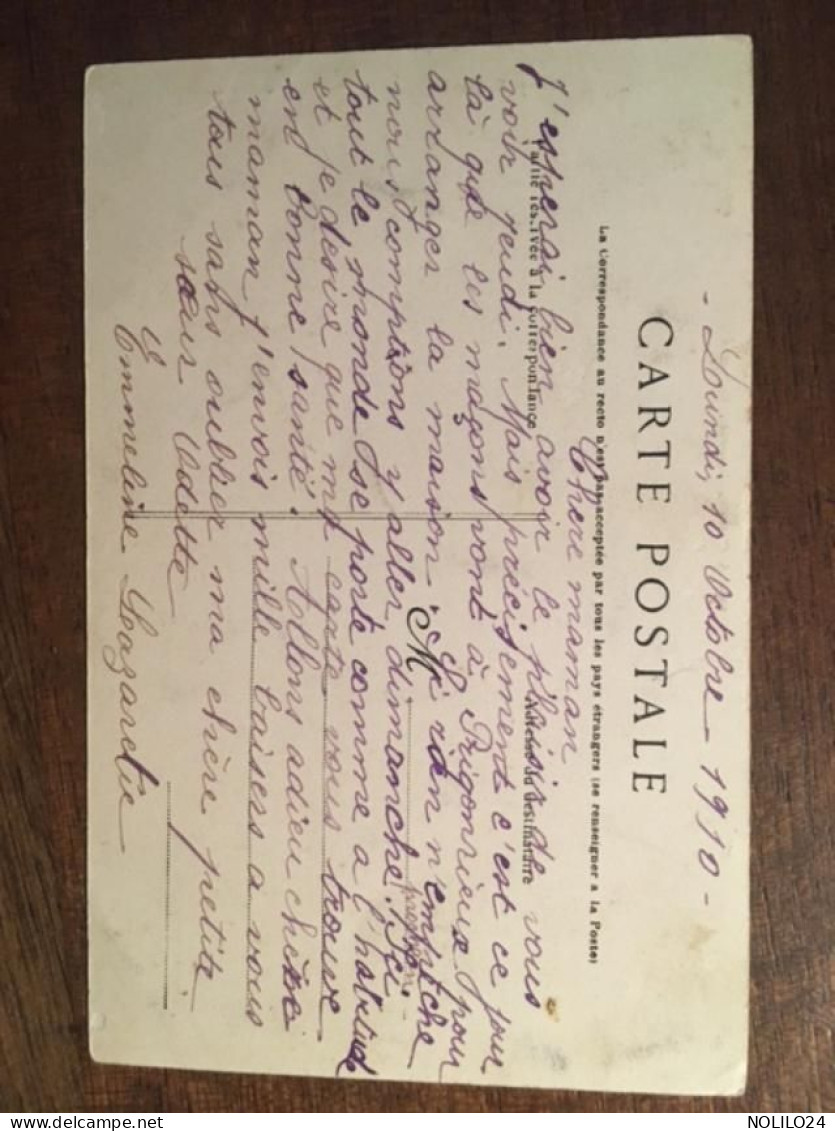 - Lundi, 10 Octobre - 1910 -
CARTE POSTALE
La Correspondance au recto n'est pas acceptée par tous les pays étrangers (se renseigner à la Poste)
Partie réservée à la correspondance
Adresse du destinataire
M
Chere maman
J'esperai bien avoir le plaisir de vous
voir jeudi. Mais précisement c'est ce jour
là que les maçons vont à Prigonrieux pour
arranger la maison. Si rien n'empêche
nous comptions y aller dimanche. Ici
tout le monde se porte comme a l'habitude
et je desire que ma carte vous trouve
en bonne santé. Allons adieu chère
maman j'envois mille baisers a vous
tous sans oublier ma chère petite
sœur Odette
Emmeline Lagarelie
NOLILO24